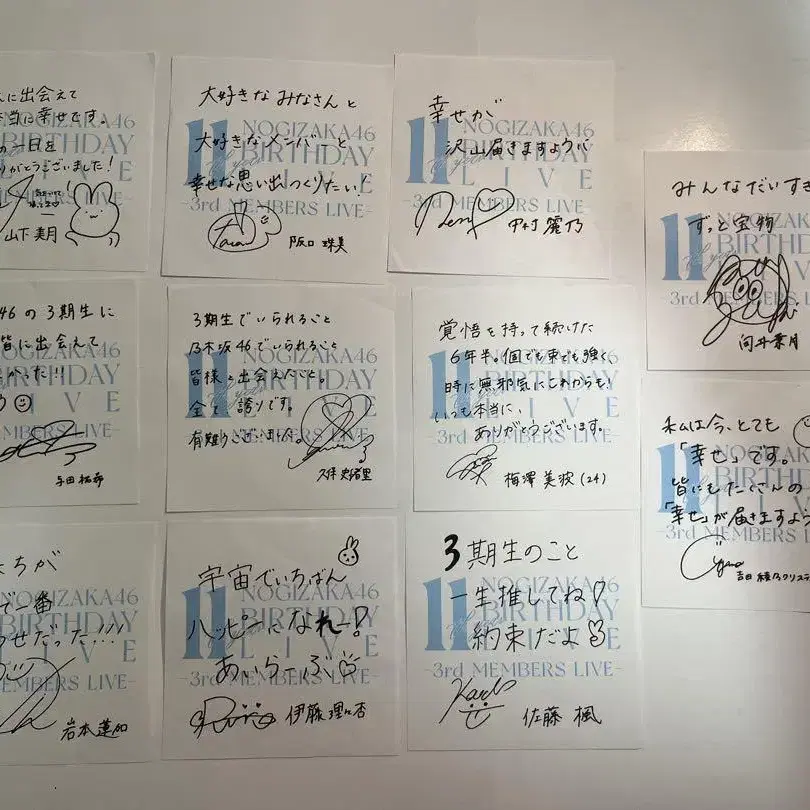 に出会えて
当に幸せです。
の一日を
りがとうございました!
山下美月
大好きな みなさんと
大好きなメンバーと
幸せな思い出つくりたい!
阪口 珠美
幸せが
沢山届きますように
中村 麗乃
みんなだいすき
ずっと宝物
向井葉月
46の3期生に
皆に出会えて
かった!!
与田祐希
3期生でいられること
乃木坂46でいられること
皆様と出会えたこと。
全て 誇りです。
有難うございました。
久保 史緒里
覚悟を持って続けた
6年半。個でも束でも強く
時に無邪気にこれからも!
いつも本当に、
ありがとうございます。
梅澤 美波(24)
私は今、とても
「幸せ」です。
皆にもたくさんの
「幸せ」が届きますよう
吉田 綾乃クリスティ
ちが
で一番
せだった!!!
岩本蓮加
宇宙でいちばん
ハッピーになれー!
あいらーぶ
伊藤 理々杏
3期生のこと
一生推してね
約束だよ
佐藤 楓
11 NOGIZAKA46
BIRTHDAY
LIVE
-3rd MEMBERS LIVE-